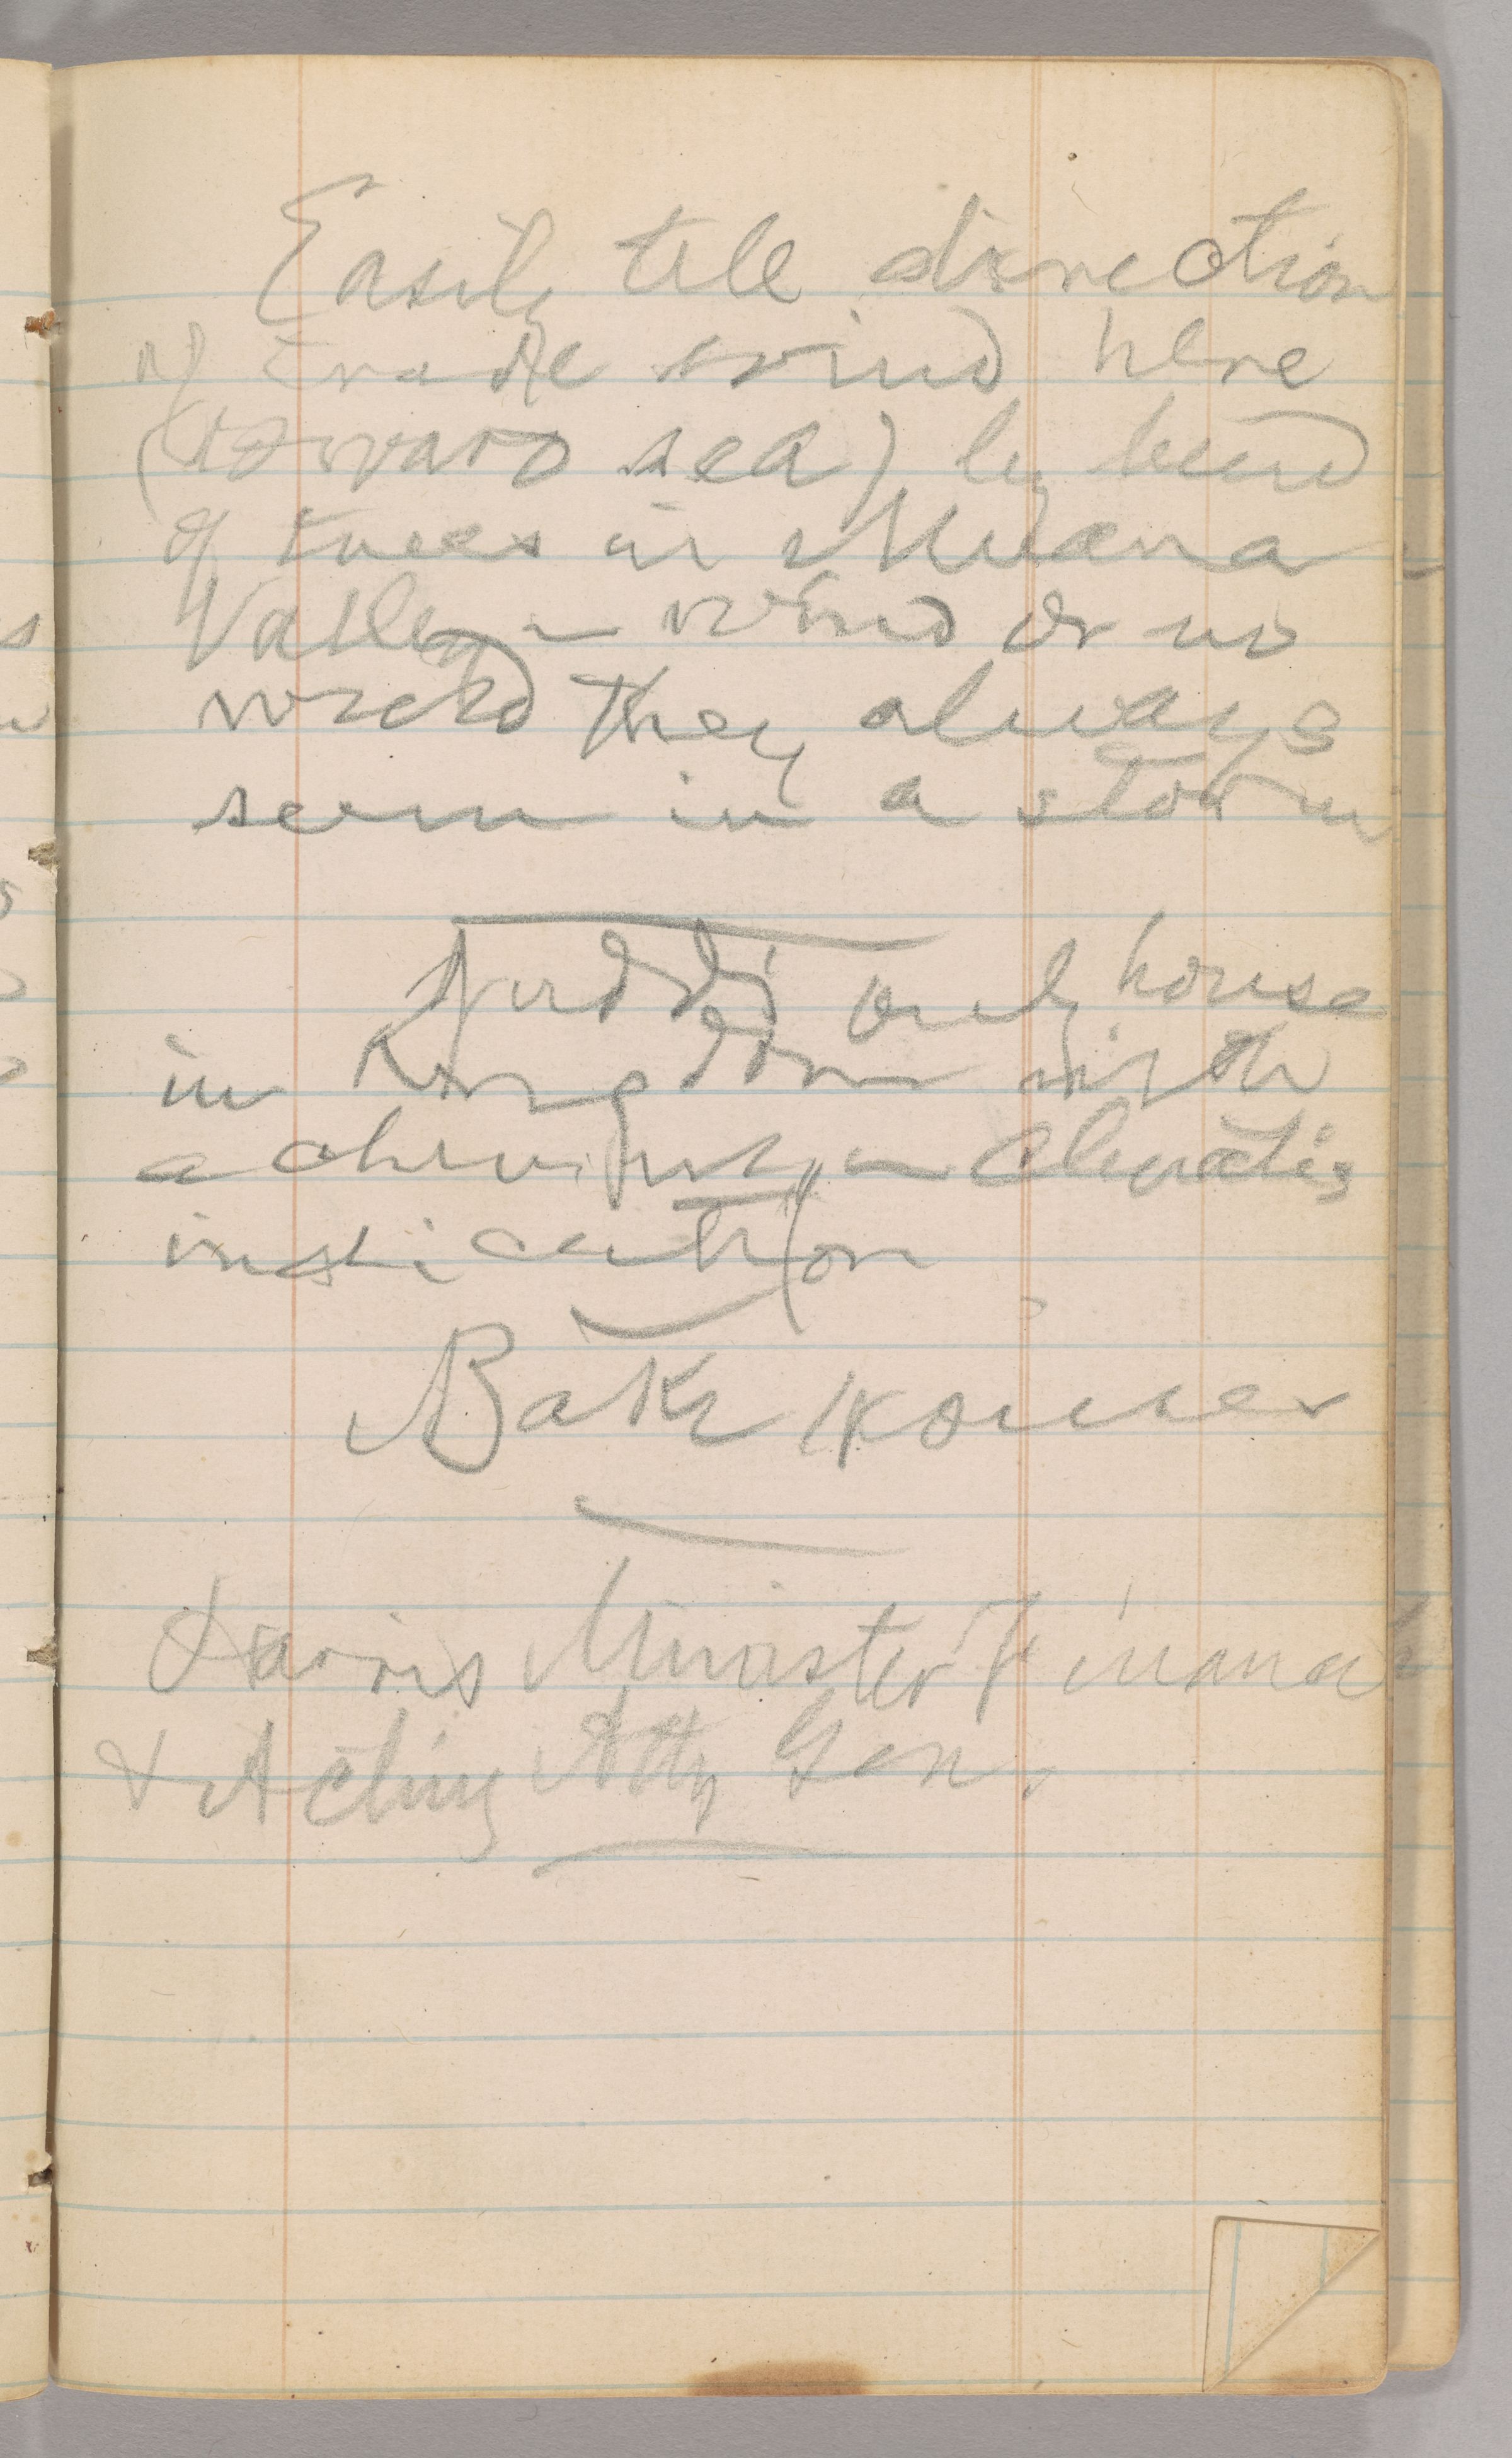 Easily tell direction
of trade wind here
(toward sea) by bend
of trees in Nuana
Valley — wind or no
wind they always
seem in a storm
Judd's only house
in Kingdom with
a chimney — Climatic
indication
Bath houses
Harris Minister Finance
& Acting Atty Gen.